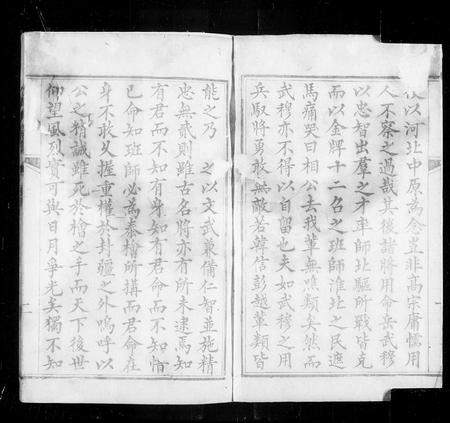 以河北中原為念豈非高宗庸懦用
人不察之過哉其後諸將用命岳武穆
以忠智出羣之才率師北驅所戰皆克
而以金牌十二召之班師淮北之民遮
馬痛哭曰相公去我輩無噍類矣然而
武穆亦不得以自留也夫如武穆之用
兵馭將勇敢無敵若韓信彭越輩類皆
能之乃之以文武兼備仁智並施精
忠無貳則雖古名將亦有所未逮焉知
有君而不知有身知有君命而不知惜
己命知班師必為秦檜所搆而君命在
身不敢久握重權於封疆之外嗚呼以
公之精誠雖死於檜之手而天下後世
仰望風烈實可與日月爭光矣獨不知
二